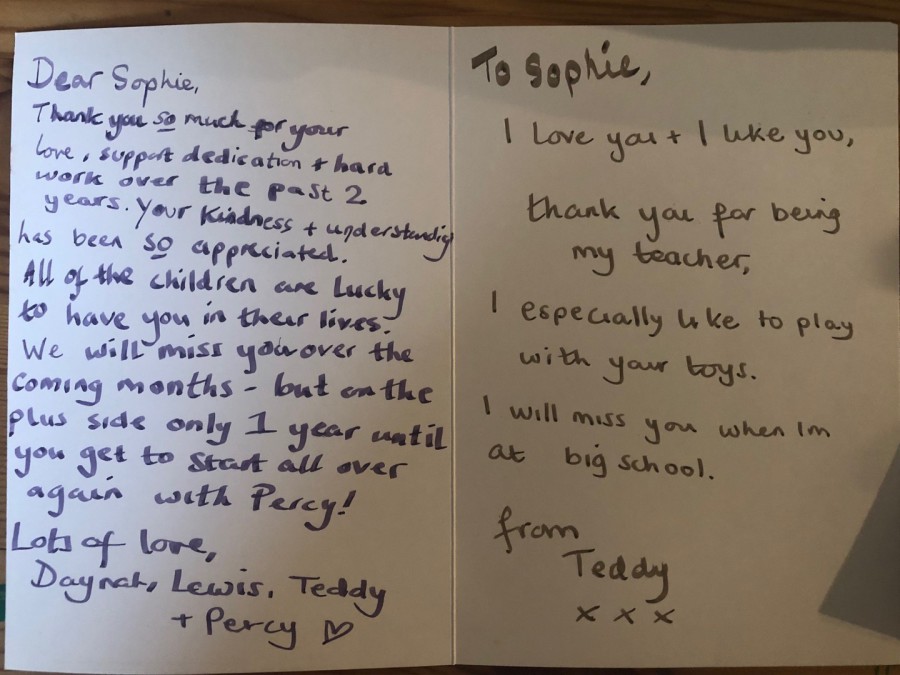 Dear Sophie,
Thank you so much for your
love, support dedication + hard
work over the past 2
years. Your kindness + understanding
has been so appreciated.
All of the children are lucky
to have you in their lives.
We will miss you over the
coming months - but on the
plus side only 1 year until
you get to start all over
again with Percy!
Lots of love,
Daynah, Lewis, Teddy
+ Percy ♡
To Sophie,
I love you + I like you,
thank you for being
my teacher,
I especially like to play
with your toys.
I will miss you when Im
at big school.
from
Teddy
x x x